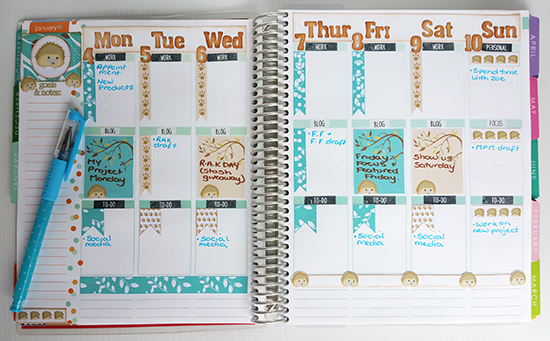 january
goals
& notes:
Mon Tue Wed Thur Fri Sat Sun
4 5 6 7 8 9 10
WORK WORK WORK WORK WORK WORK PERSONAL
Appointment
ment
New
Products
• Spend time
with Zoe
BLOG BLOG BLOG BLOG BLOG BLOG FOCUS
My
Project
Monday
• R.A.K
draft
R.A.K DAY
(Stash
giveaway)
• F.F +
F.F draft
Friday
Focus +
Featured
Friday
Show us
Saturday
• M.P.M draft
TO-DO TO-DO TO-DO TO-DO TO-DO TO-DO TO-DO
• Social
media
• Social
media
• Social
media
• Social
media
• Work on
new project
APRIL
MAY
JUNE
FEBRUARY
MARCH
DECEMBER